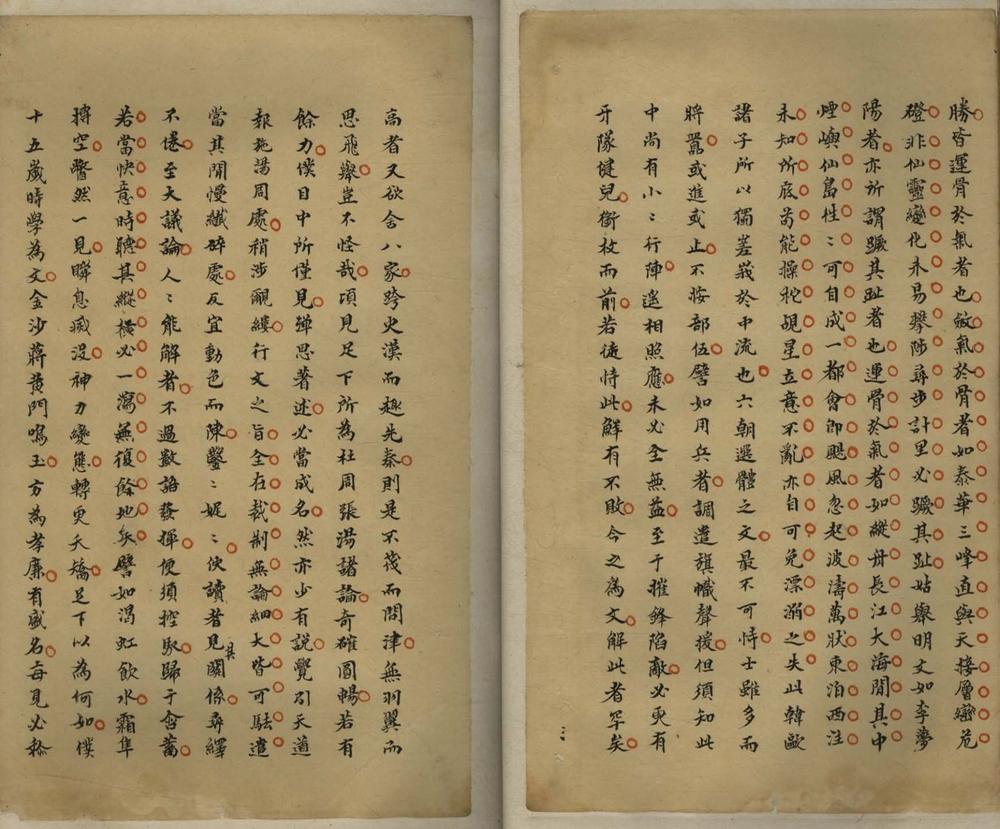 勝皆運骨於氣者也斂氣於骨者如泰華三峰直與天接層巒危
磴非仙靈變化未易攀陟尋步計里必蹶其趾姑舉明文如李夢
陽者亦所謂蹶其趾者也運骨於氣者如縱舟長江大海間其中
煙嶼仙島往〻可自成一都會即颶風忽起波濤萬狀東泊西注
未知所底苟能操柁覘星立意不亂亦自可免漂溺之失此韓歐
諸子所以獨嵳峩於中流也六朝選體之文最不可恃士雖多而
將囂或進或止不按部伍譬如用兵者調遣旗幟聲援但須知此
中尚有小〻行陣遙相照應未必全無益至于摧鋒陷敵必更有
牙隊健兒銜枚而前若徒恃此鮮有不敗今之爲文解此者罕矣
高者又欲舍八家跨史漢而趨先秦則是不筏而問津無羽翼而
思飛舉豈不怪哉頃見足下所為杜周張湯諸論奇確圓暢若有
餘力僕目中所僅見殫思著述必當成名然亦少有說覺引天道
報施湯周處稍涉覼縷行文之旨全在裁制無論細大皆可駐遣
當其閒慢纖碎處反宜動色而陳鑿〻娓〻使讀者見其關係尋繹
不倦至大議論人〻能解者不過數語發揮便須控馭歸于含蓄
若當快意時聽其縱橫必一瀉無復餘地矣譬如渴虹飲水霜隼
摶空瞥然一見瞬息滅没神力變態轉更夭矯足下以為何如僕
十五歲時學為文金沙蔣黄門鳴玉方為孝廉有盛名每見必称